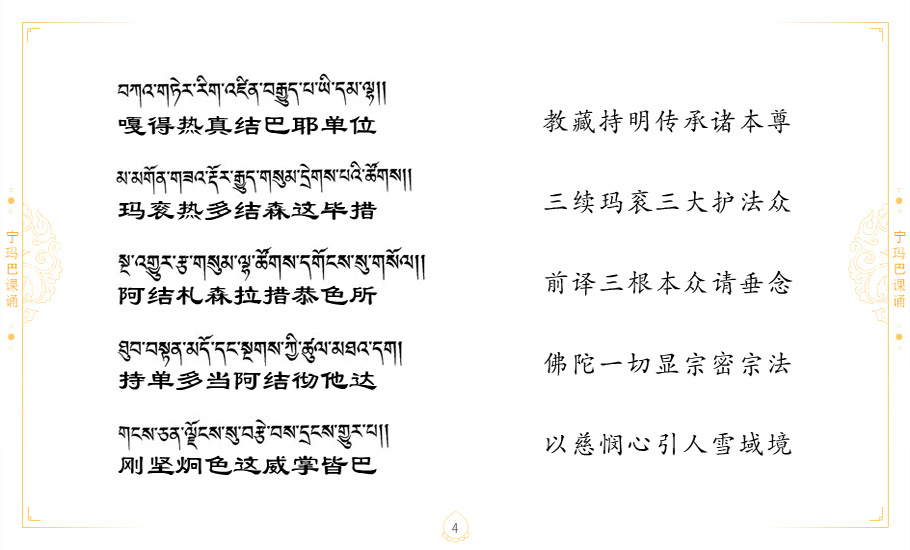 བཀའ་གཏེར་རིག་འཛིན་བརྒྱུད་པ་ཡི་དམ་ལྷ།།
嘎得热真结巴耶单位
教藏持明传承诸本尊
མ་མགོན་གཟའ་རྡོར་རྒྱུད་གསུམ་དྲེགས་པའི་ཚོགས།།
玛衮热多结森这毕措
三续玛衮三大护法众
སྔ་འགྱུར་རྩ་གསུམ་ལྷ་ཚོགས་དགོངས་སུ་གསོལ།།
阿结札森拉措恭色所
前译三根本众请垂念
ཐུབ་བསྟན་མདོ་དང་སྔགས་ཀྱི་ཚུལ་མཐའ་དག།
持单多当阿结彻他达
佛陀一切显宗密宗法
གངས་ཅན་ལྗོངས་སུ་བརྩེ་བས་དྲངས་གྱུར་པ།།
刚坚炯色这威掌皆巴
以慈悯心引人雪域境
宁玛巴课诵
宁玛巴课诵
4